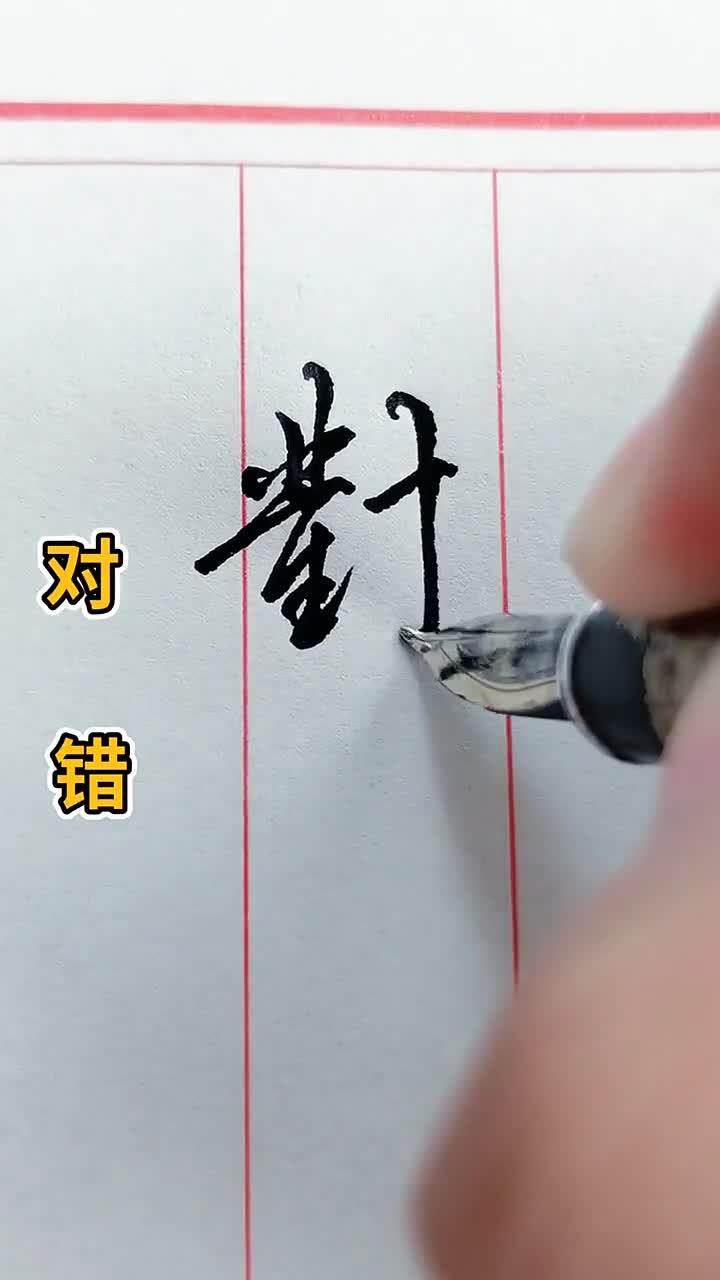 對
对
错